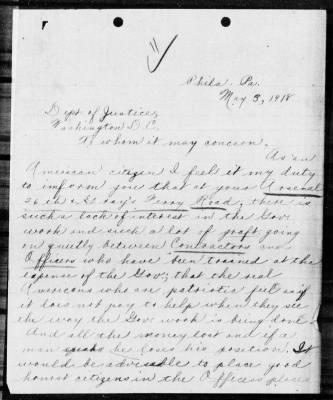 Phila. Pa.
May 3, 1918
Dept of Justice,
Washington D.C.
To whom it may concern.
As an
American citizen I feel it my duty
to inform you that at your Arsenal
26th & Gray's Ferry Road, there is
such a lack of interest in the Gov.
work and such a lot of graft going
on quietly between Contractors and
Officers who have been trained at the
expense of the Gov; that the real
Americans who are patriotic feel as if
it does not pay to help when they see
the way the Gov. work is being done.
And all the money lost and if a
man speaks he loses his position. It
would be advisable to place good
honest citizens in the Officers place